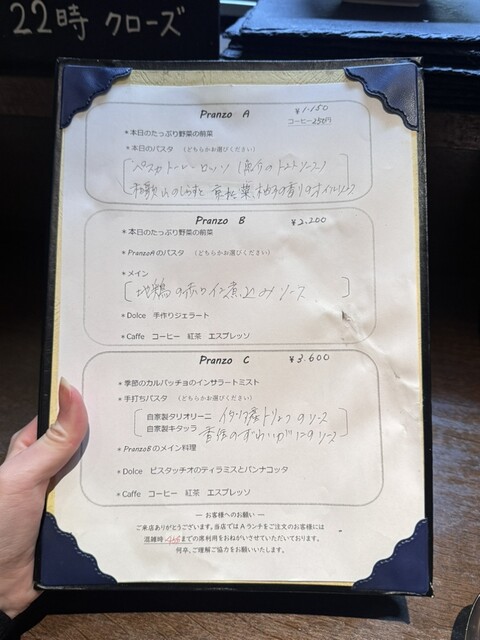 22時 クローズ
Pranzo A ¥1.150
コーヒー250円
*本日のたっぷり野菜の前菜
*本日のパスタ （どちらかお選びください）
ペスカトーレ ロッソ (魚介のトマトソース)
和歌山のしらすと 京松菜 柚子の香りのオイルソース
Pranzo B ¥2.200
*本日のたっぷり野菜の前菜
*PranzoAのパスタ （どちらかお選びください）
*メイン
地鶏の赤ワイン煮込み ソース
*Dolce 手作りジェラート
*Caffe コーヒー 紅茶 エスプレッソ
Pranzo C ¥3.600
*季節のカルパッチョのインサラートミスト
*手打ちパスタ （どちらかお選びください）
自家製タリオリーニ イタリア産トリュフのソース
自家製キタッラ 香住のずわいがにのソース
*PranzoBのメイン料理
*Dolce ピスタッチオのティラミスとパンナコッタ
*Caffe コーヒー 紅茶 エスプレッソ
― お客様へのお願い ―
ご来店ありがとうございます。当店ではAランチをご注文のお客様には
混雑時 までの席利用をおねがいさせていただいております。
何卒、ご理解ご協力をお願いいたします。